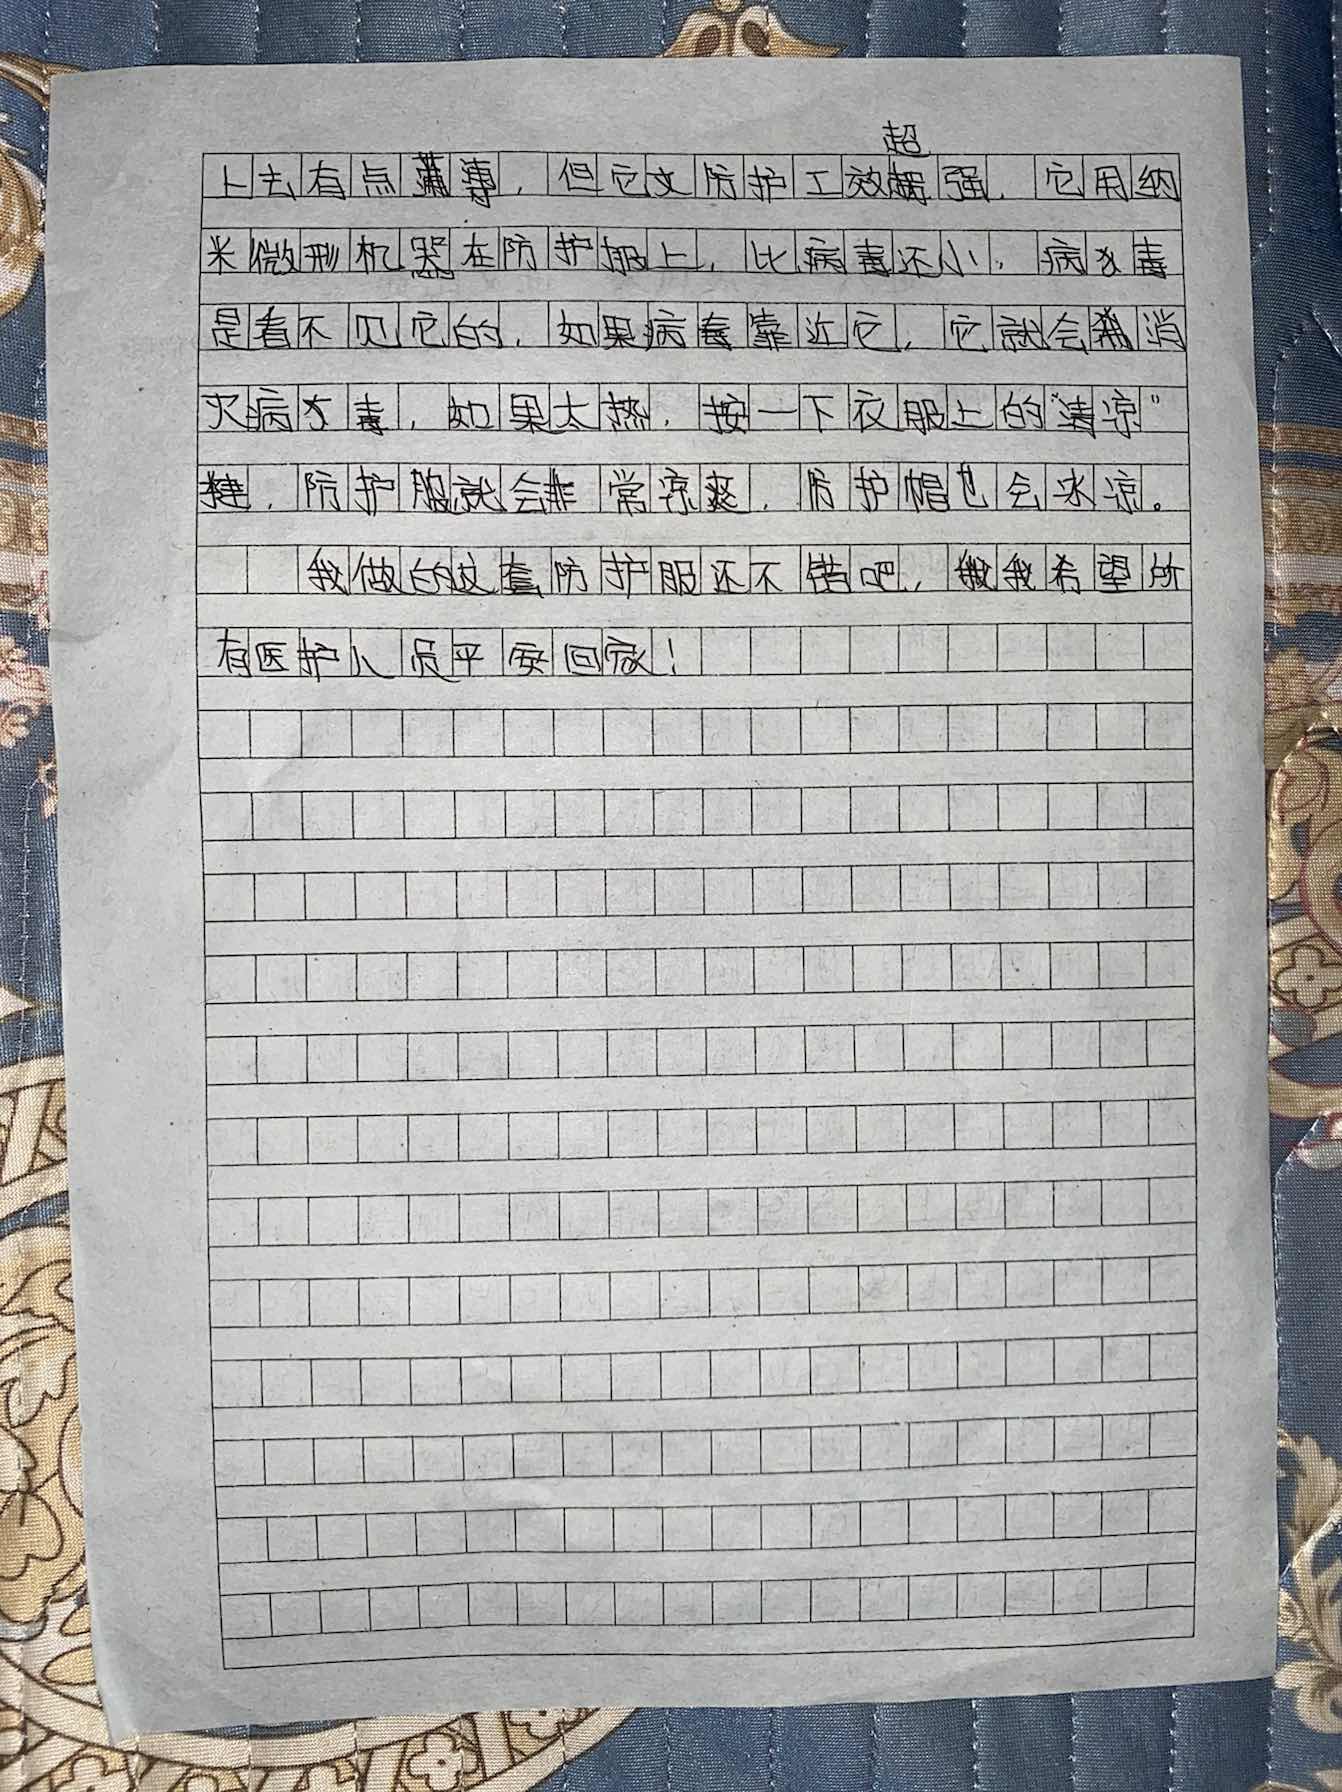 超
上去有点薄，但它文防护工效强，它用纳
米微形机器在防护服上，比病毒还小，病毒
是看不见它的，如果病毒靠近它，它就会消
灭病毒，如果太热，按一下衣服上的“清凉”
键，防护服就会非常凉爽，防护帽也会冰凉。
我做的这套防护服还不错吧，我希望所
有医护人员平安回家！